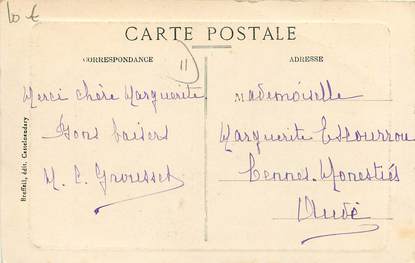 10 €
CARTE POSTALE
CORRESPONDANCE
ADRESSE
11
Merci chère Marguerite.
Bons baisers
M. C. Grousset
Mademoiselle
Marguerite Escourrou
Cennes-Monestiés
Aude
Breffeil, édit. Castelnaudary